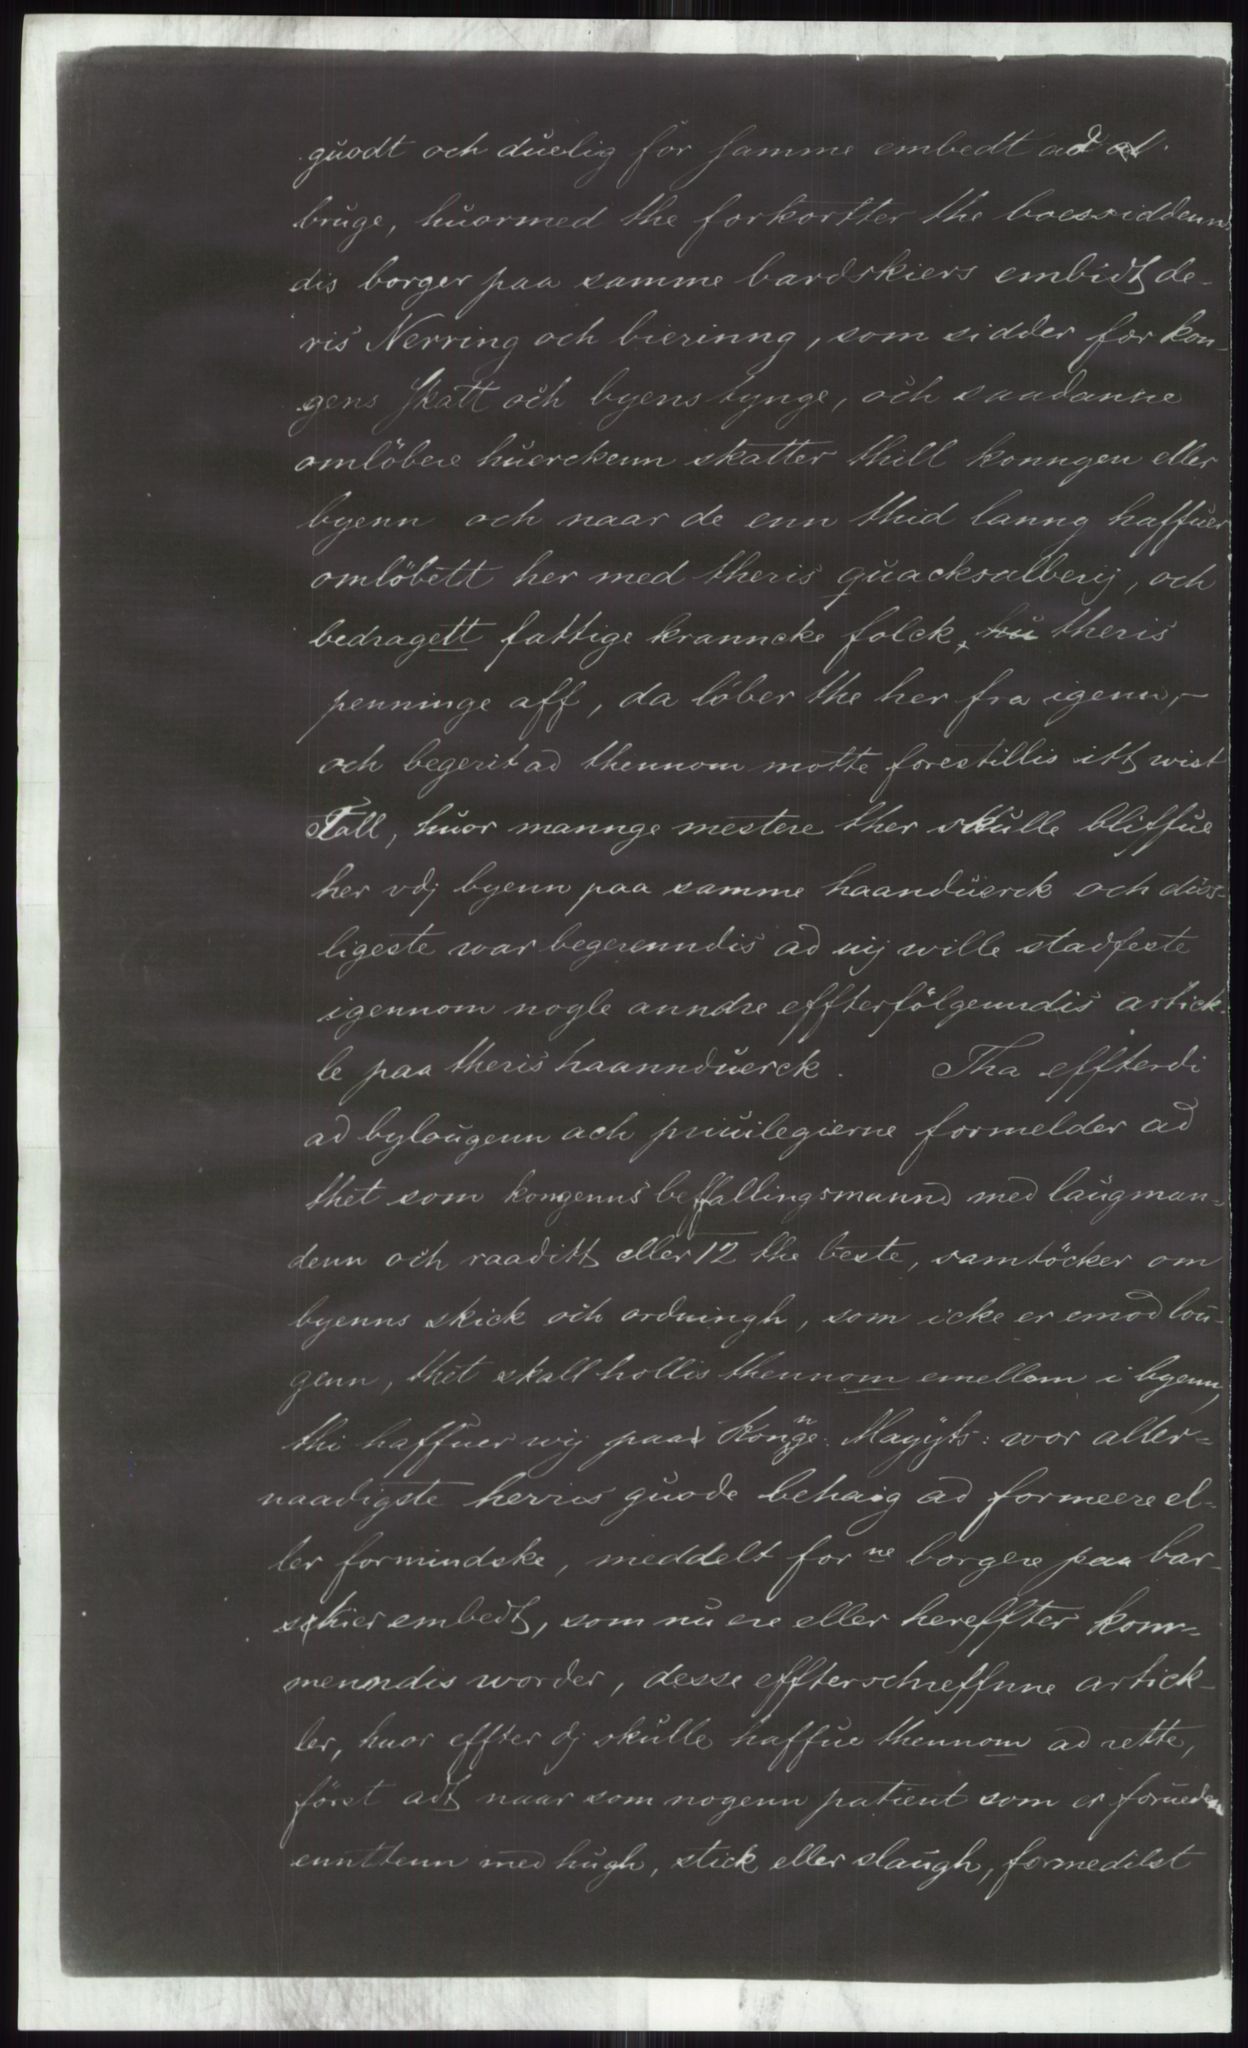 guodt och duelig for samme embedt ad
bruge, huormed the forkortter the boessiddenn
dis borger paa samme bardskiers embidt de-
ris Nerring och bierinng, som sidder for kon-
gens Skatt och byens tynge, och saadanne
omlöbere huerckenn skatter thill konngen eller
byenn och naar de enn thid lanng haffuer
omlöbett her med theris quacksalberij, och
bedragett fattige kranncke folck, theris
penninge aff, da löber the her fra igenn,-
och begerit ad thennom motte forestillis itt wist
Tall, huor mannge mestere ther skulle bliffue
her vdj byenn paa samme haanduerck och diss-
ligeste war begerenndis ad wij wille stadfeste
igennom nogle anndre effterfölgenndis artick-
le paa theris haannduerck. Tha effterdi
ad bylougenn och priuilegierne formelder ad
thet som kongenns beffallingsmannd med laugman-
denn och raaditt eller 12 the beste, samtöcker om
byenns skick och ordningh, som icke er emod lou-
genn, thet skall hollis thennom emellom i byenn,
thi haffuer wij paa Konnge: Mayijts: wor aller-
naadigste herris guode behaig ad formeere el-
ler formindske, meddelt forne borgere paa bar-
skier embedt, som nu ere eller hereffter kom-
menndis worder, desse effterschreffnne artick-
ler, huor effter dj skulle haffue thennom ad rette,
först adt naar som nogenn patient som er forueden
ennttenn med hugh, stick eller slaugh, formedilst